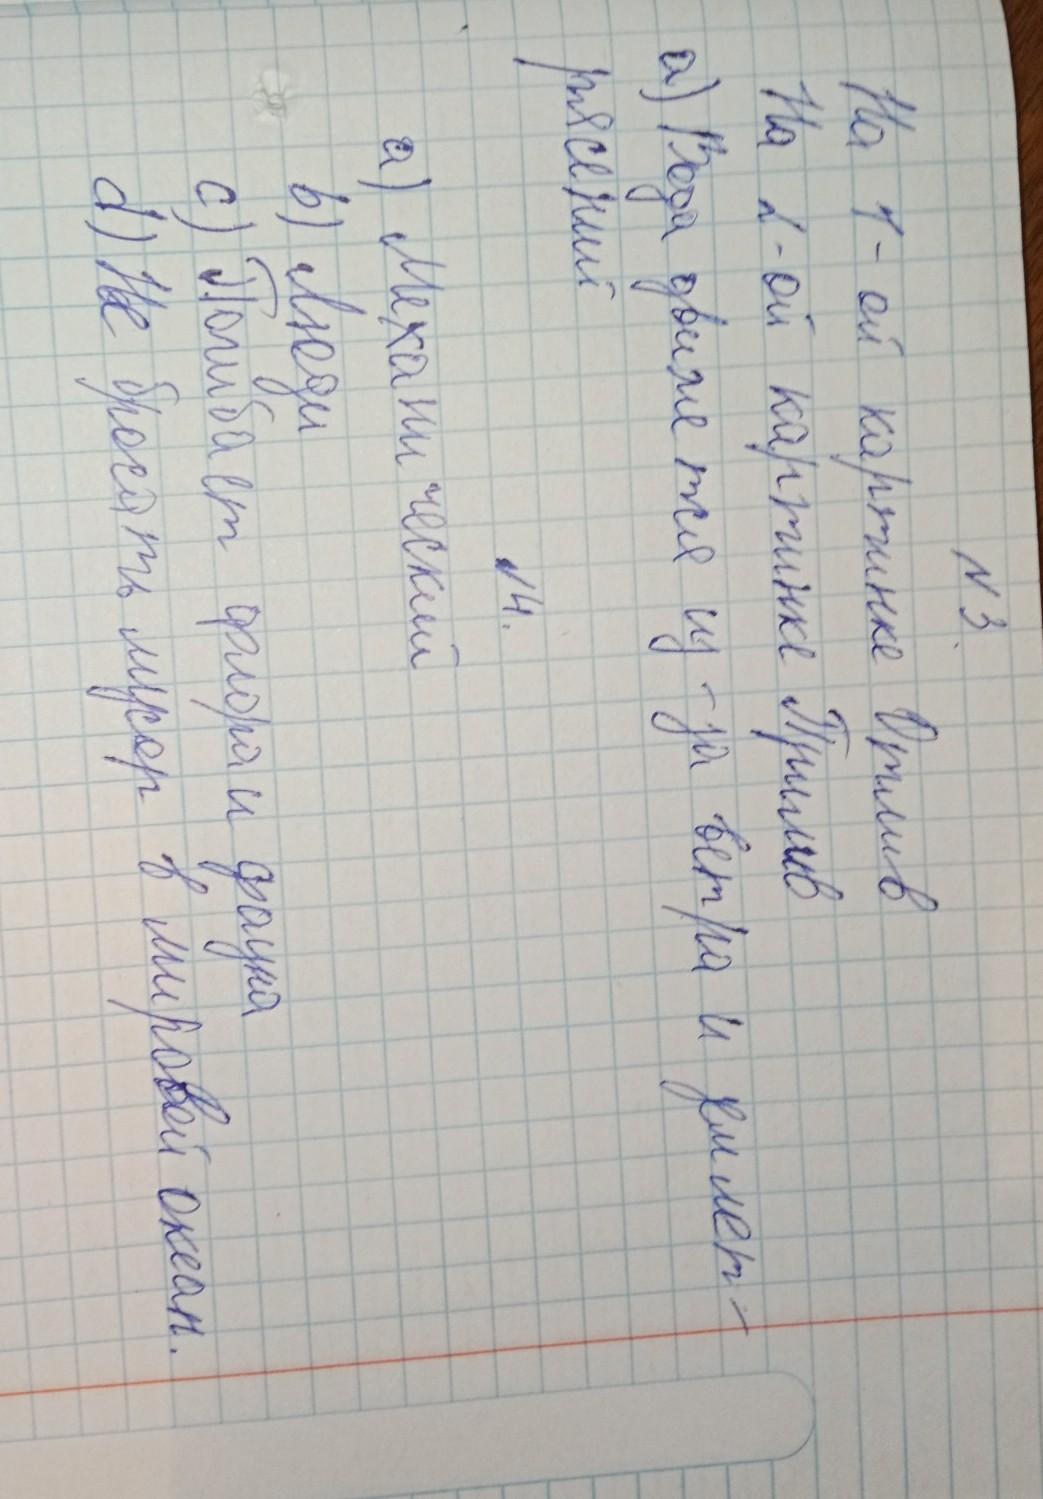 N 3.
На 1-ой картинке Отлив
На 2-ой картинке Прилив
а) Вода движется из-за ветра и землет-
рясений
N4.
a) Механический
b) Люди
c) Погибает флора и фауна
d) Не бросать мусор в мировой океан.